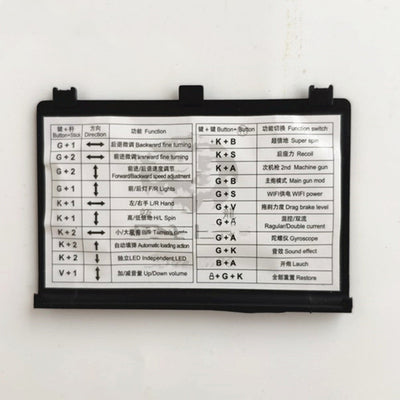 键+杆 Button+Stick 方向 Direction 功能 Function
G + 1 ↔ 后退微调 Backward fine turning
G + 2 ↔ 前进微调 fine turning
G + 2 ↕ 前进/后退速度调节 Forward/Backward speed adjustment
G + 1 ↕ 前/后灯 F/R Lights
K + 1 ↔ 左/右手 L/R Hand
K + 1 ↕ 高/低俯地 H/L Spin
K + 2 ↔ 小/大 Tamiya
K + 2 ↑ 自动填弹 Automatic loading action
K + 2 ↓ 独立LED Independent LED
V + 1 ↕ 加/减音量 Up/Down volume
键+键 Button+Button 功能切换 Function switch
K + B Super spin
K + S 后座力 Recoil
K + A 次机枪 2nd Machine gun
G + B 主炮模式 Main gun mod
G + S WIFI供电 WIFI power
G + V 拖刹力度 Drag brake level
G + 混控/双流 Ragular/Double current
G + A 陀螺仪 Gyroscope
G + K 音效 Sound effect
B + A 开炮 Lauch
+ G + K 全部重置 Restore